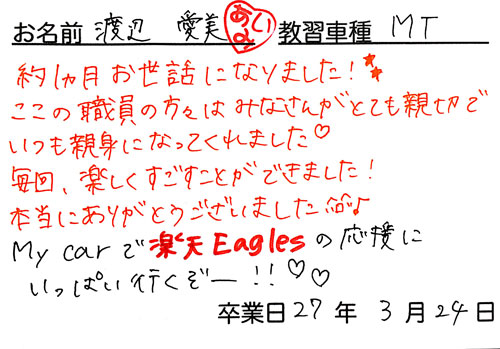 お名前 渡辺 愛美 あいみ 教習車種 MT
約1ヵ月お世話になりました!
ここの職員の方々はみなさんがとても親切で
いつも親身になってくれました♡
毎回、楽しくすごすことができました!
本当にありがとうございました♪
My carで楽天Eaglesの応援に
いっぱい行くぞー!!♡♡
卒業日27年3月24日